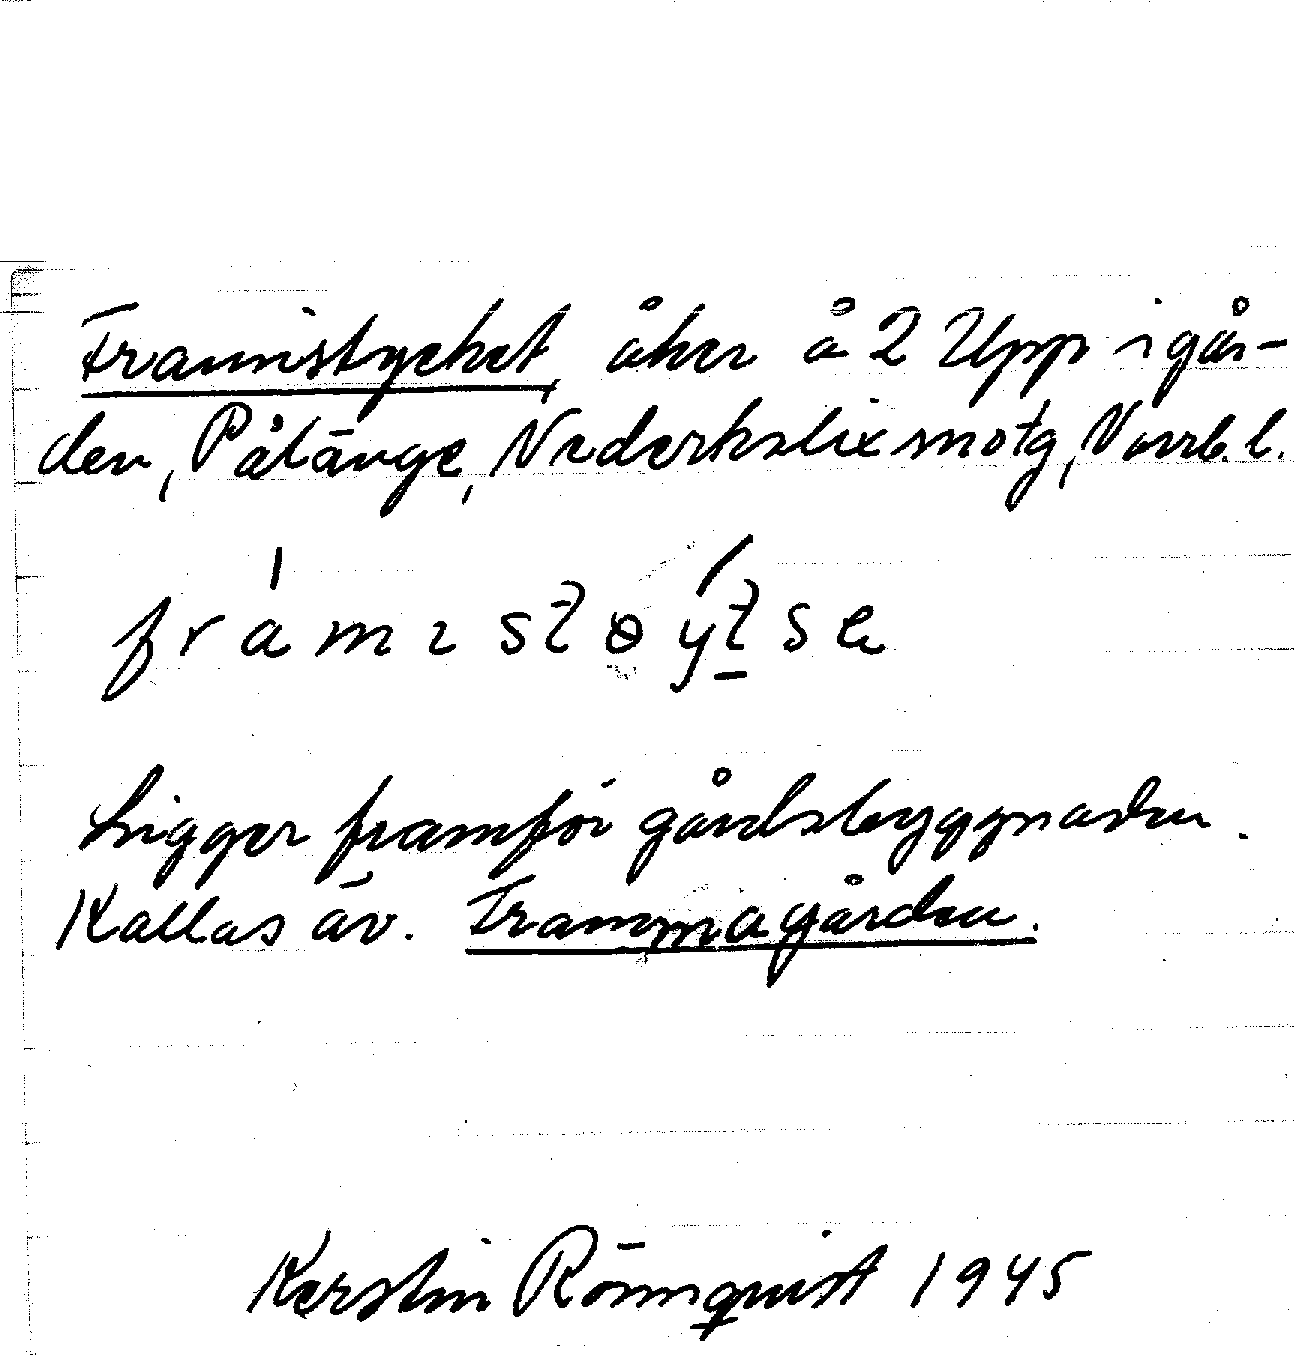 Framistycket, åker å 2 Upp i går-
den, Pålänge, Nederkalix sn o tg, Norrb. l.
Ligger framför gårdsbyggnaden.
Kallas äv. Frammagården.
Kerstin Rönnquist 1945